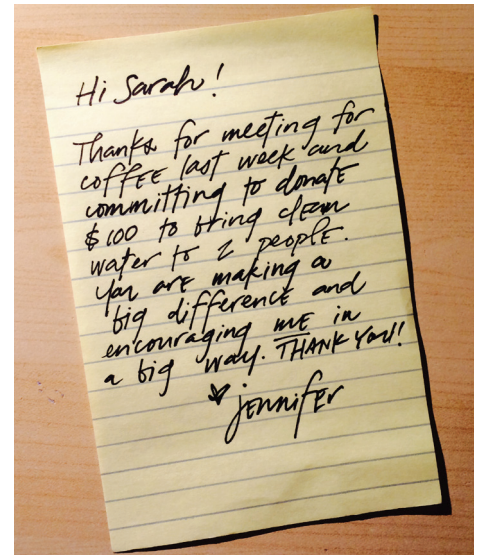 Hi Sarah!
Thanks for meeting for
coffEE last week and
committing to donatE
$100 to bring clean
water to 2 peoplE.
You arE making a
big differencE and
encouraging mE in
a big way. THANK You!!
♥ jEnnifEr